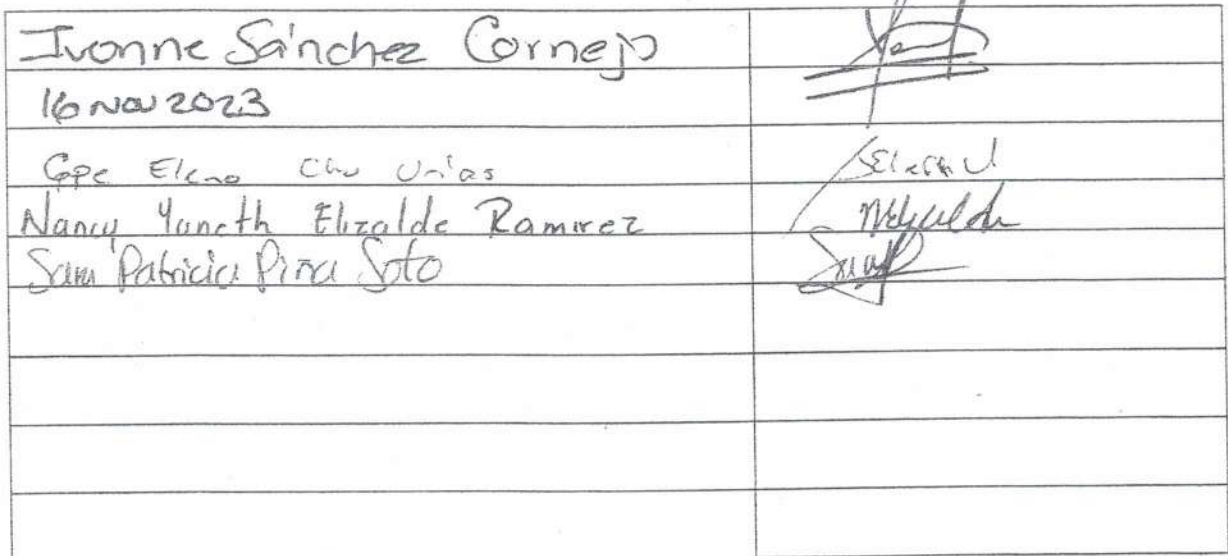 Ivonne Sánchez Cornejo
16 Nov 2023
Gpe Elena Chu
Nancy Yaneth Elizalde Ramirez
Patricia Piña Soto